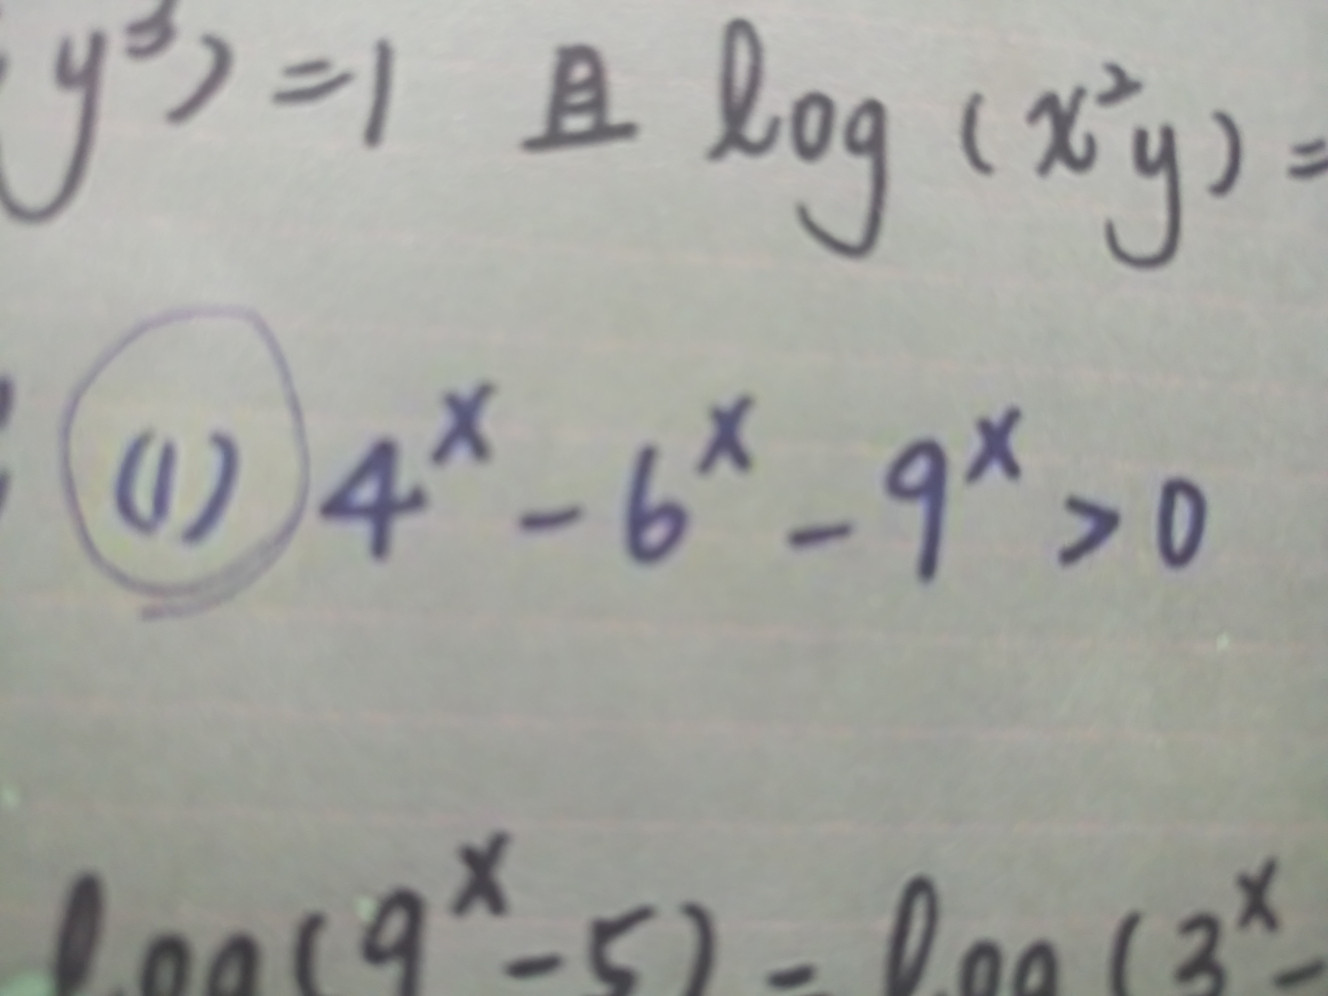 y³) = 1 且 log (x²y) =
(1) 4ˣ - 6ˣ - 9ˣ > 0
log (9ˣ - 5) = log (3ˣ -